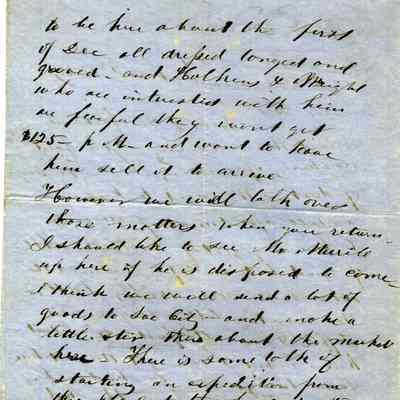 to be here about the first
of Dec all dressed tonged and
groved - and Hulhens & Wright
who are interested with him
are fearful they wont get
$125 - p M - and want to have
him sell it to arrive
However we will talk over
those matters when you return -
I should like to see Mr Merile
up here if he is disposed to come -
I think we will send a lot of
goods to Sac City - and make a
little stir then about the market
here - There is some talk of
starting an expedition from